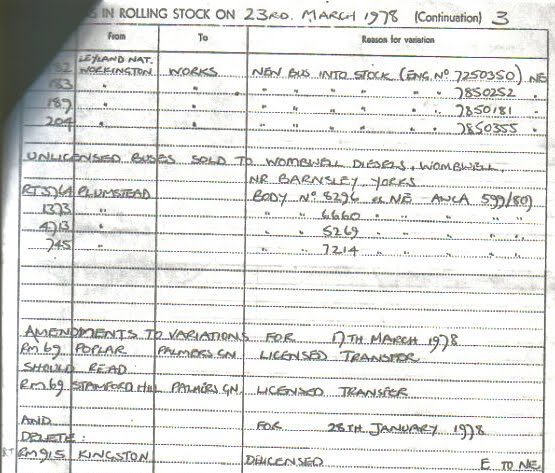 IN ROLLING STOCK ON 23RD. MARCH 1978 (Continuation) 3
From To Reason for variation
LEYLAND NAT.
WORKINGTON WORKS NEW BUS INTO STOCK (ENG. No 7250350) NE
183 " " " " " " " 7850252 "
187 " " " " " " " 7850181 "
204 " " " " " " " 7850355 "
UNLICENSED BUSES SOLD TO WOMBWELL DIESELS, WOMBWELL,
NR BARNSLEY YORKS
PLUMSTEAD BODY No 8296 NE AWCA 599/80)
1373 " " " 6660 " " " "
4713 " " " 5269 " " " "
745 " " " 7214 " " " "
AMENDMENTS TO VARIATIONS FOR 17TH MARCH 1978
RM 69 POPLAR PALMERS GN. LICENSED TRANSFER
SHOULD READ
RM 69 STAMFORD HILL PALMERS GN. LICENSED TRANSFER
AND FOR 28TH JANUARY 1978
DELETE:
RM 915 KINGSTON DELICENSED E TO NE